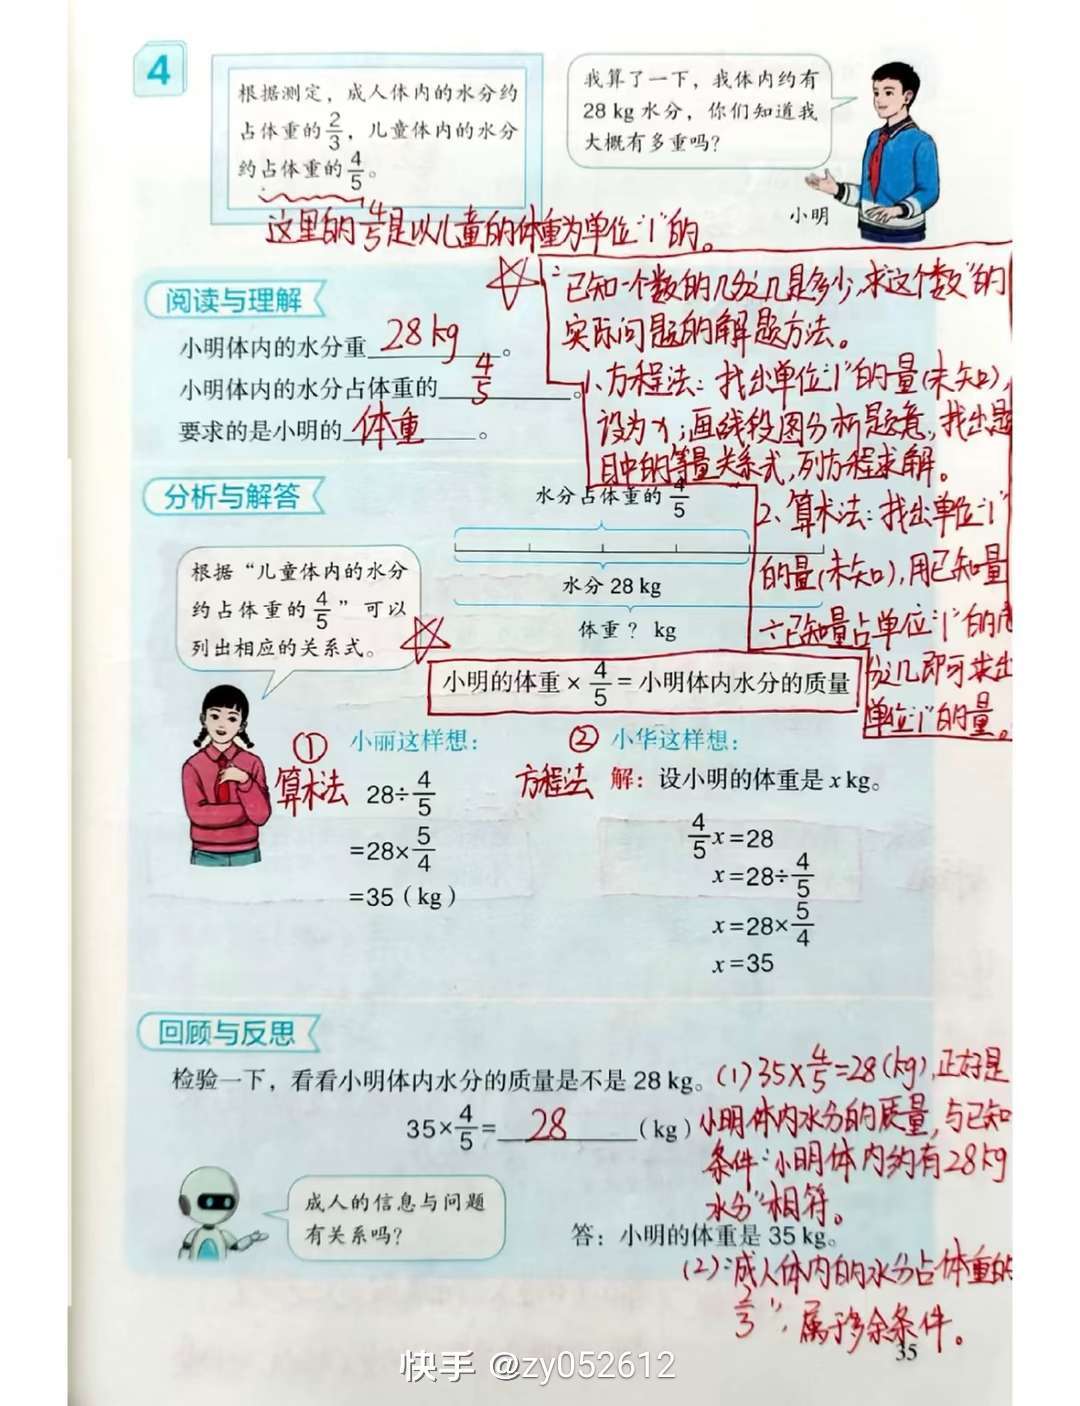 4
根据测定，成人体内的水分约
占体重的2/3，儿童体内的水分
约占体重的4/5。
我算了一下，我体内约有
28 kg 水分，你们知道我
大概有多重吗？
小明
这里的4/5是以儿童的体重为单位"1"的。
阅读与理解
小明体内的水分重 28kg 。
小明体内的水分占体重的 4/5 。
要求的是小明的 体重 。
"已知一个数的几分之几是多少，求这个数"的
实际问题的解题方法。
1、方程法：找出单位"1"的量(未知)，
设为x；画线段图分析题意，找出题
目中的等量关系式，列方程求解。
2、算术法：找出单位"1"
的量(未知)，用已知量
÷已知量占单位"1"的几
分之几即可求出
单位"1"的量。
分析与解答
根据"儿童体内的水分
约占体重的4/5"可以
列出相应的关系式。
水分占体重的4/5
水分 28 kg
体重？ kg
小明的体重×4/5=小明体内水分的质量
① 小丽这样想：
算术法
28÷4/5
=28×5/4
=35（kg）
② 小华这样想：
方程法 解：设小明的体重是 x kg。
4/5x=28
x=28÷4/5
x=28×5/4
x=35
回顾与反思
检验一下，看看小明体内水分的质量是不是 28 kg。
35×4/5= 28 （kg）
(1)35×4/5=28(kg)，正好是
小明体内水分的质量，与已知
条件"小明体内约有28kg
水分"相符。
成人的信息与问题
有关系吗？
答：小明的体重是 35 kg。
(2)"成人体内的水分占体重的
2/3"，属于多余条件。
35
快手 @zy052612